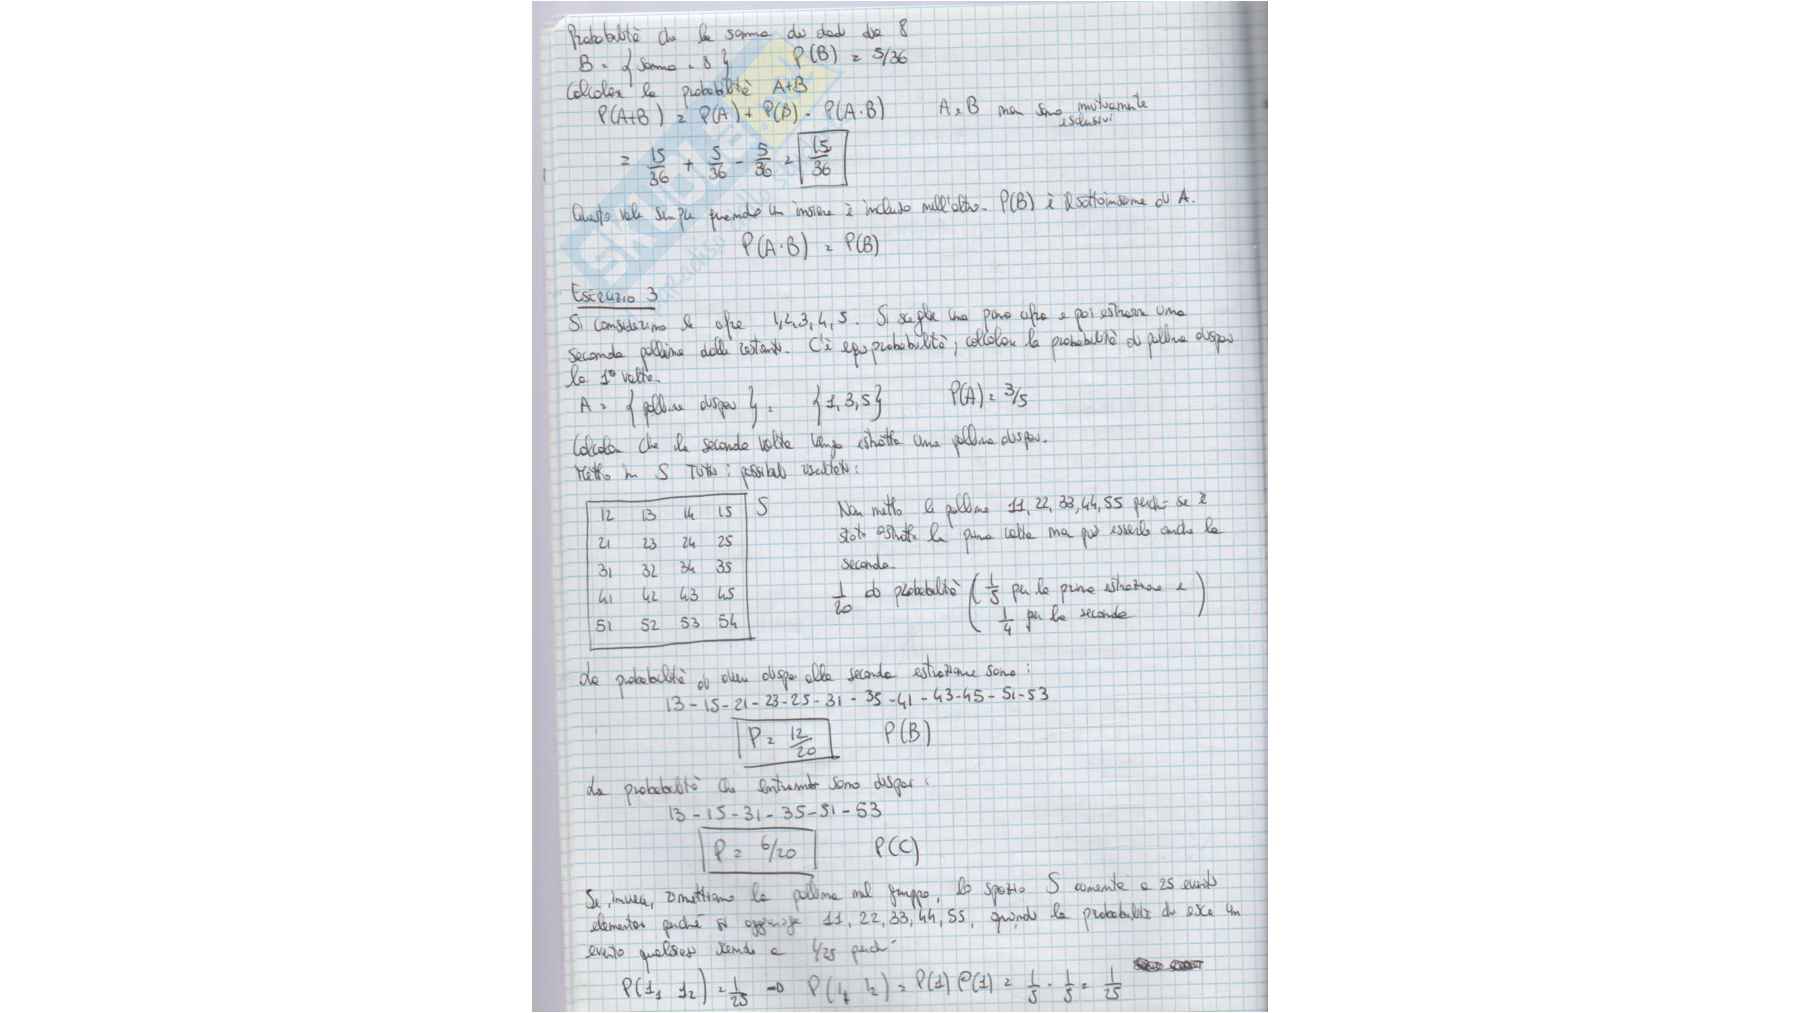 Probabilità che la somma dei dadi sia 8
B = { somma = 8 } P(B) = 5/36
Calcolare la probabilità A+B
P(A+B) = P(A) + P(B) - P(A·B) A e B non sono mutuamente
esclusivi
= 15/36 + 5/36 - 5/36 = 15/36
Questo vale sempre quando un insieme è incluso nell'altro. P(B) è il sottoinsieme di A.
P(A·B) = P(B)
Esercizio 3
Si considerino le cifre 1,2,3,4,5. Si sceglie una prima cifra e poi estraggo una
seconda pallina dalle restanti. C'è equiprobabilità, calcolare la probabilità di pallina dispari
la 1° volta.
A = { palline dispari } = { 1,3,5 } P(A) = 3/5
Calcolare che la seconda volta venga estratta una pallina dispari.
Metto in S tutti i possibili risultati:
12 13 14 15 S
21 23 24 25
31 32 34 35
41 42 43 45
51 52 53 54
Non metto le palline 11, 22, 33, 44, 55 perché se è
stata estratta la prima volta non può esserlo anche la
seconda.
1/20 di probabilità ( 1/5 per la prima estrazione e
1/4 per la seconda )
Le probabilità di avere dispari alla seconda estrazione sono:
13 - 15 - 21 - 23 - 25 - 31 - 35 - 41 - 43 - 45 - 51 - 53
P = 12/20 P(B)
La probabilità che entrambi sono dispari:
13 - 15 - 31 - 35 - 51 - 53
P = 6/20 P(C)
Se, invece, rimettiamo la pallina nel gruppo, lo spazio S aumenta a 25 eventi
elementari perché si aggiunge 11, 22, 33, 44, 55, quindi la probabilità di un
evento qualsiasi scende a 1/25 perché
P(1₁ 1₂) = 1/25 → P(1₁ 1₂) = P(1) P(1) = 1/5 · 1/5 = 1/25